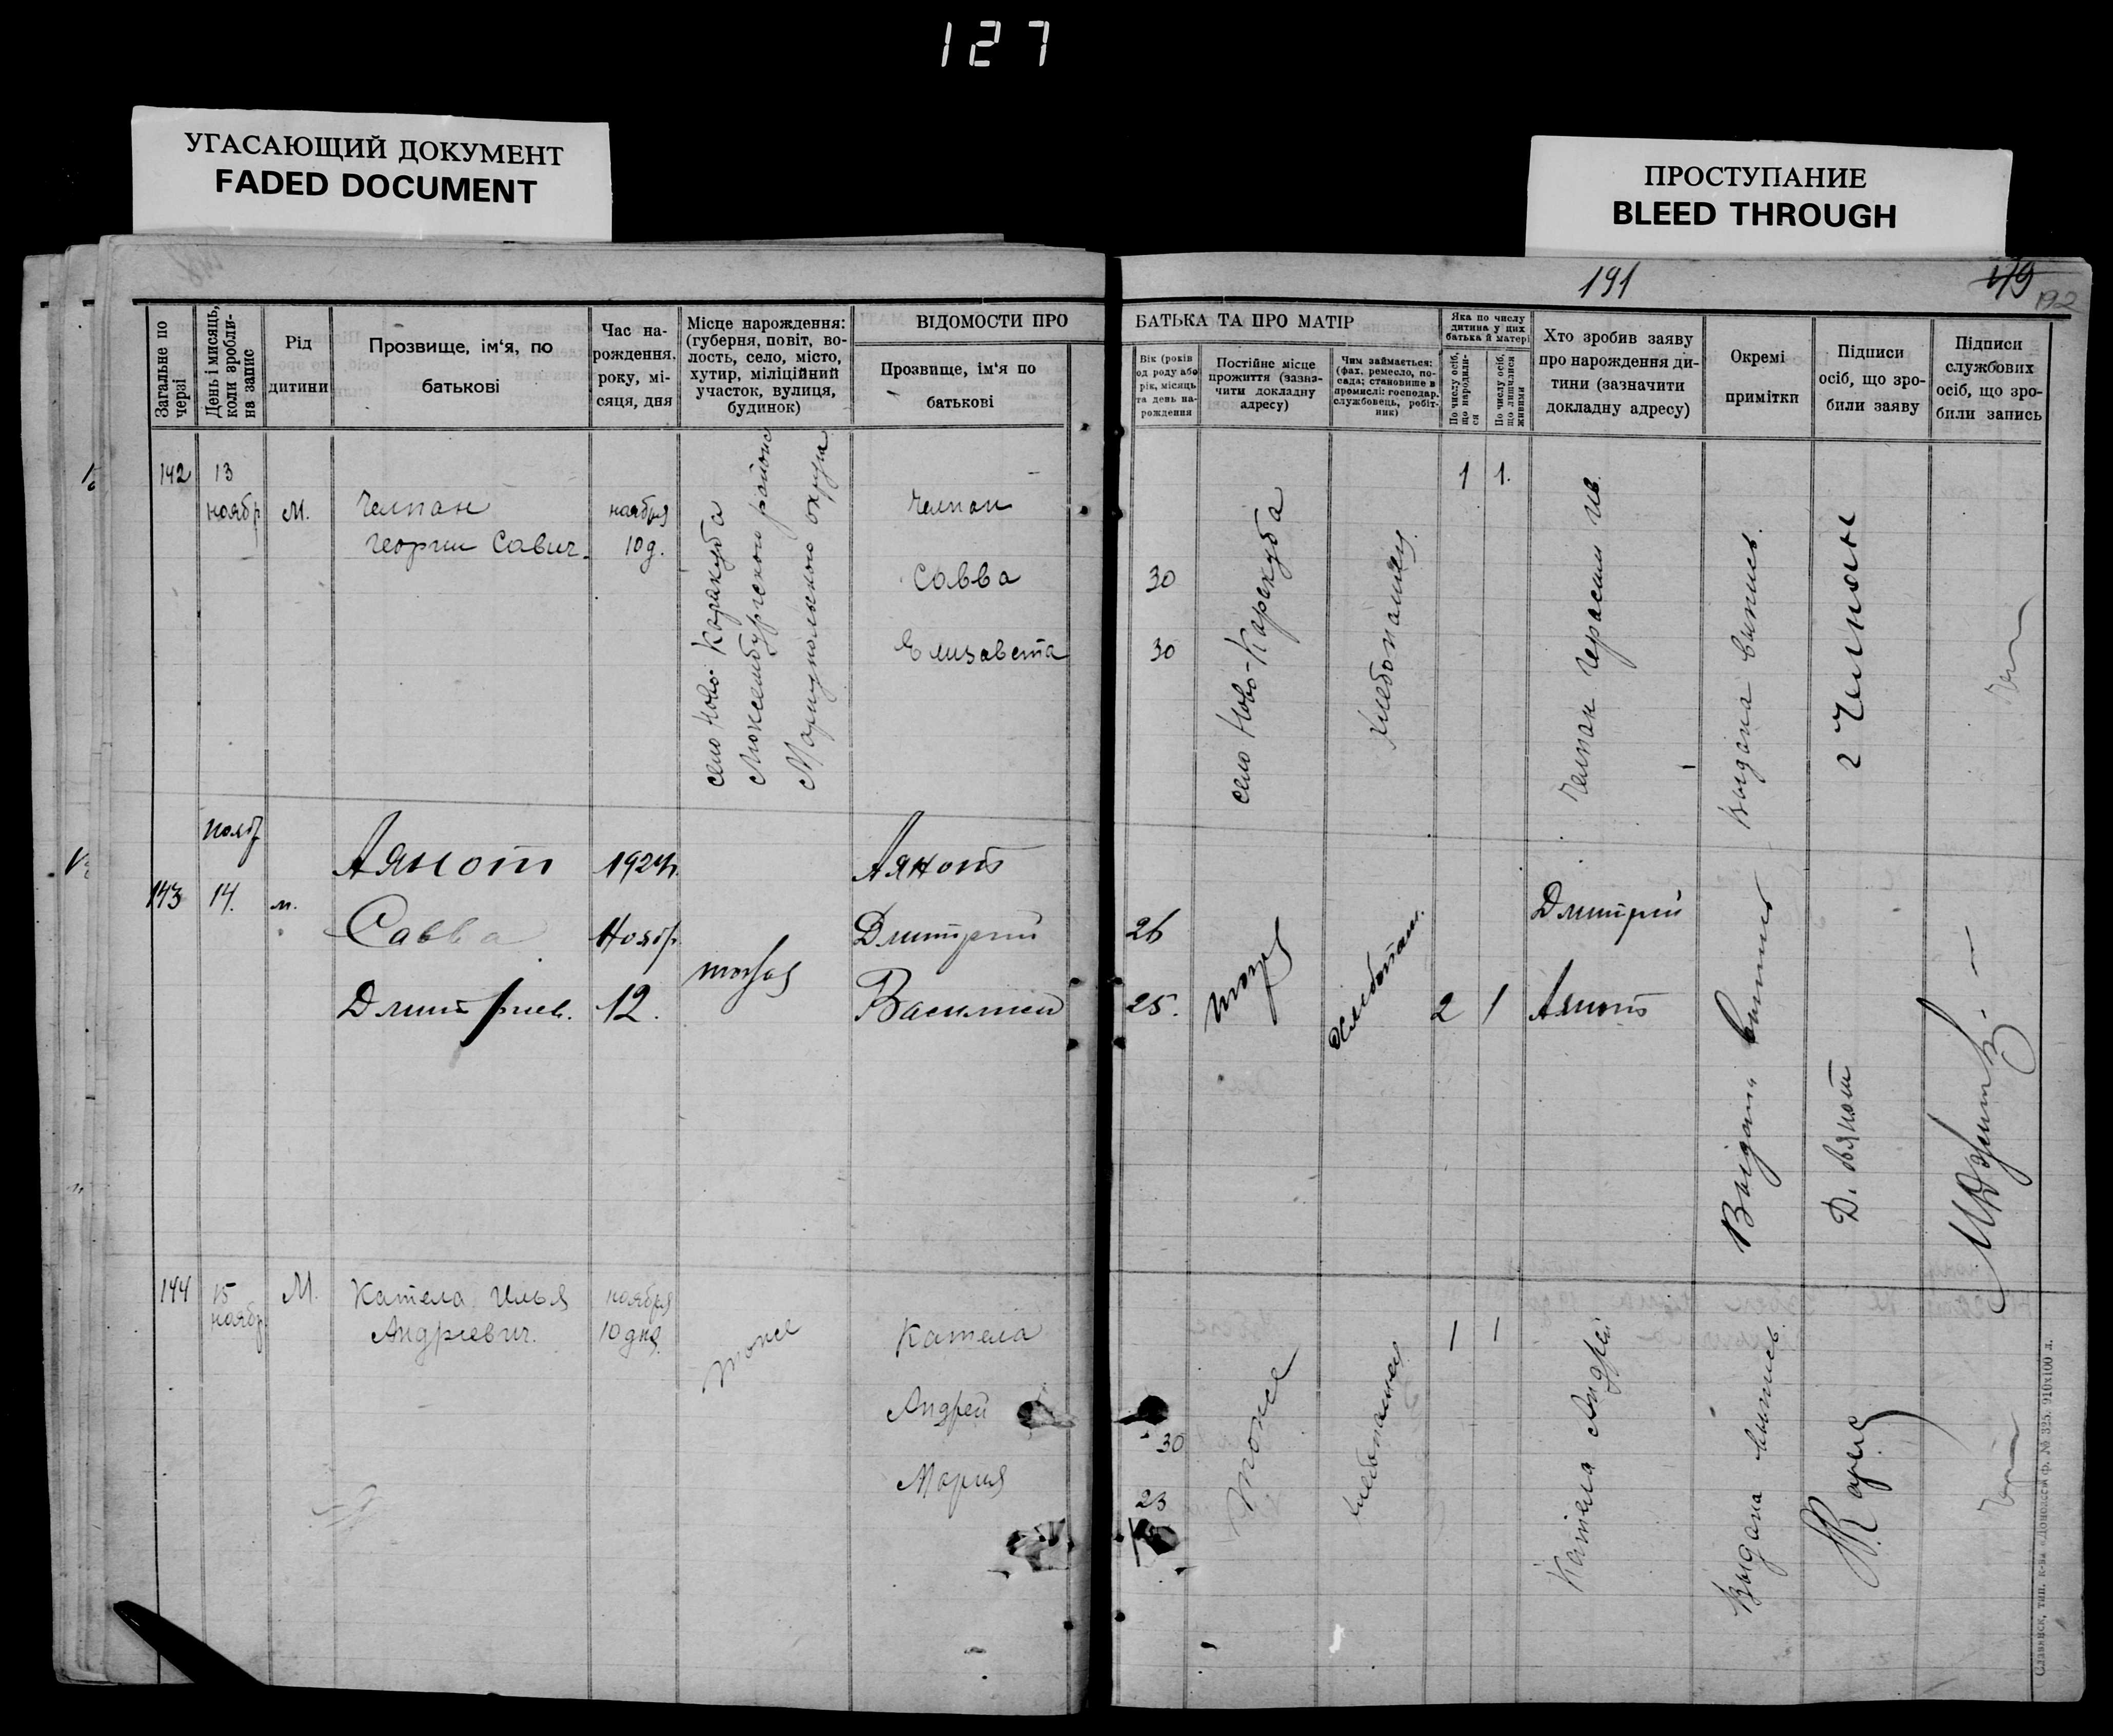 127
УГАСАЮЩИЙ ДОКУМЕНТ
FADED DOCUMENT
ПРОСТУПАНИЕ
BLEED THROUGH
191
179
192
Загальне по черзі
День і мисяць, коли зробли- на запис
Рід дитини
Прозвище, ім'я, по батькові
Час на- рождення, року, мі- сяця, дня
Місце нарождення: (губерня, повіт, во- лость, село, місто, хутир, міліційний участок, вулиця, будинок)
ВІДОМОСТИ ПРО
Прозвище, ім'я по батькові
БАТЬКА ТА ПРО МАТІР
Вік (років од роду або рік, місяць та день на- рождення
Постійне місце прожиття (зазна- чити докладну адресу)
Чим займається: (фах, ремесло, по- сада; становище в промислі: господар, службовець, робіт- ник)
Яка по числу дитина у цих батька й матері
По числу осіб, що народили- ся
По числу осіб, що лишилися живими
Хто зробив заяву про нарождення ди- тини (зазначити докладну адресу)
Окремі примітки
Підписи осіб, що зро- били заяву
Підписи службових осіб, що зро- били запись
142
13
ноябр
М.
Челпан
Георгии Савич.
ноября
10 д.
село Ново-Каракуба
Люксембургского района
Мариупольского округа
Челпан
Савва
Елизавета
30
30
село Ново-Каракуба
хлебопашец
1
1.
Челпан Герасим Ив.
выдана выпись.
Челпан
143
нояб
14.
м.
Аянот
Савва
Дмитриев.
1924г.
Нояб.
12.
тоже
Аянот
Дмитрий
Василией
26
25.
тоже
хлебопаш.
2
1
Дмитрий
Аянот
Выдана выпись
Д. Аянот
144
15
ноябр
М.
Катела Илья
Андреевич.
ноября
10 дня
тоже
Катела
Андрей
Мария
30
23
тоже
хлебопашец
1
1
Катела Андрей
выдана выпись.
Славянск, тип. к-ва «Донбасс» ф. № 325. 910х100 л.